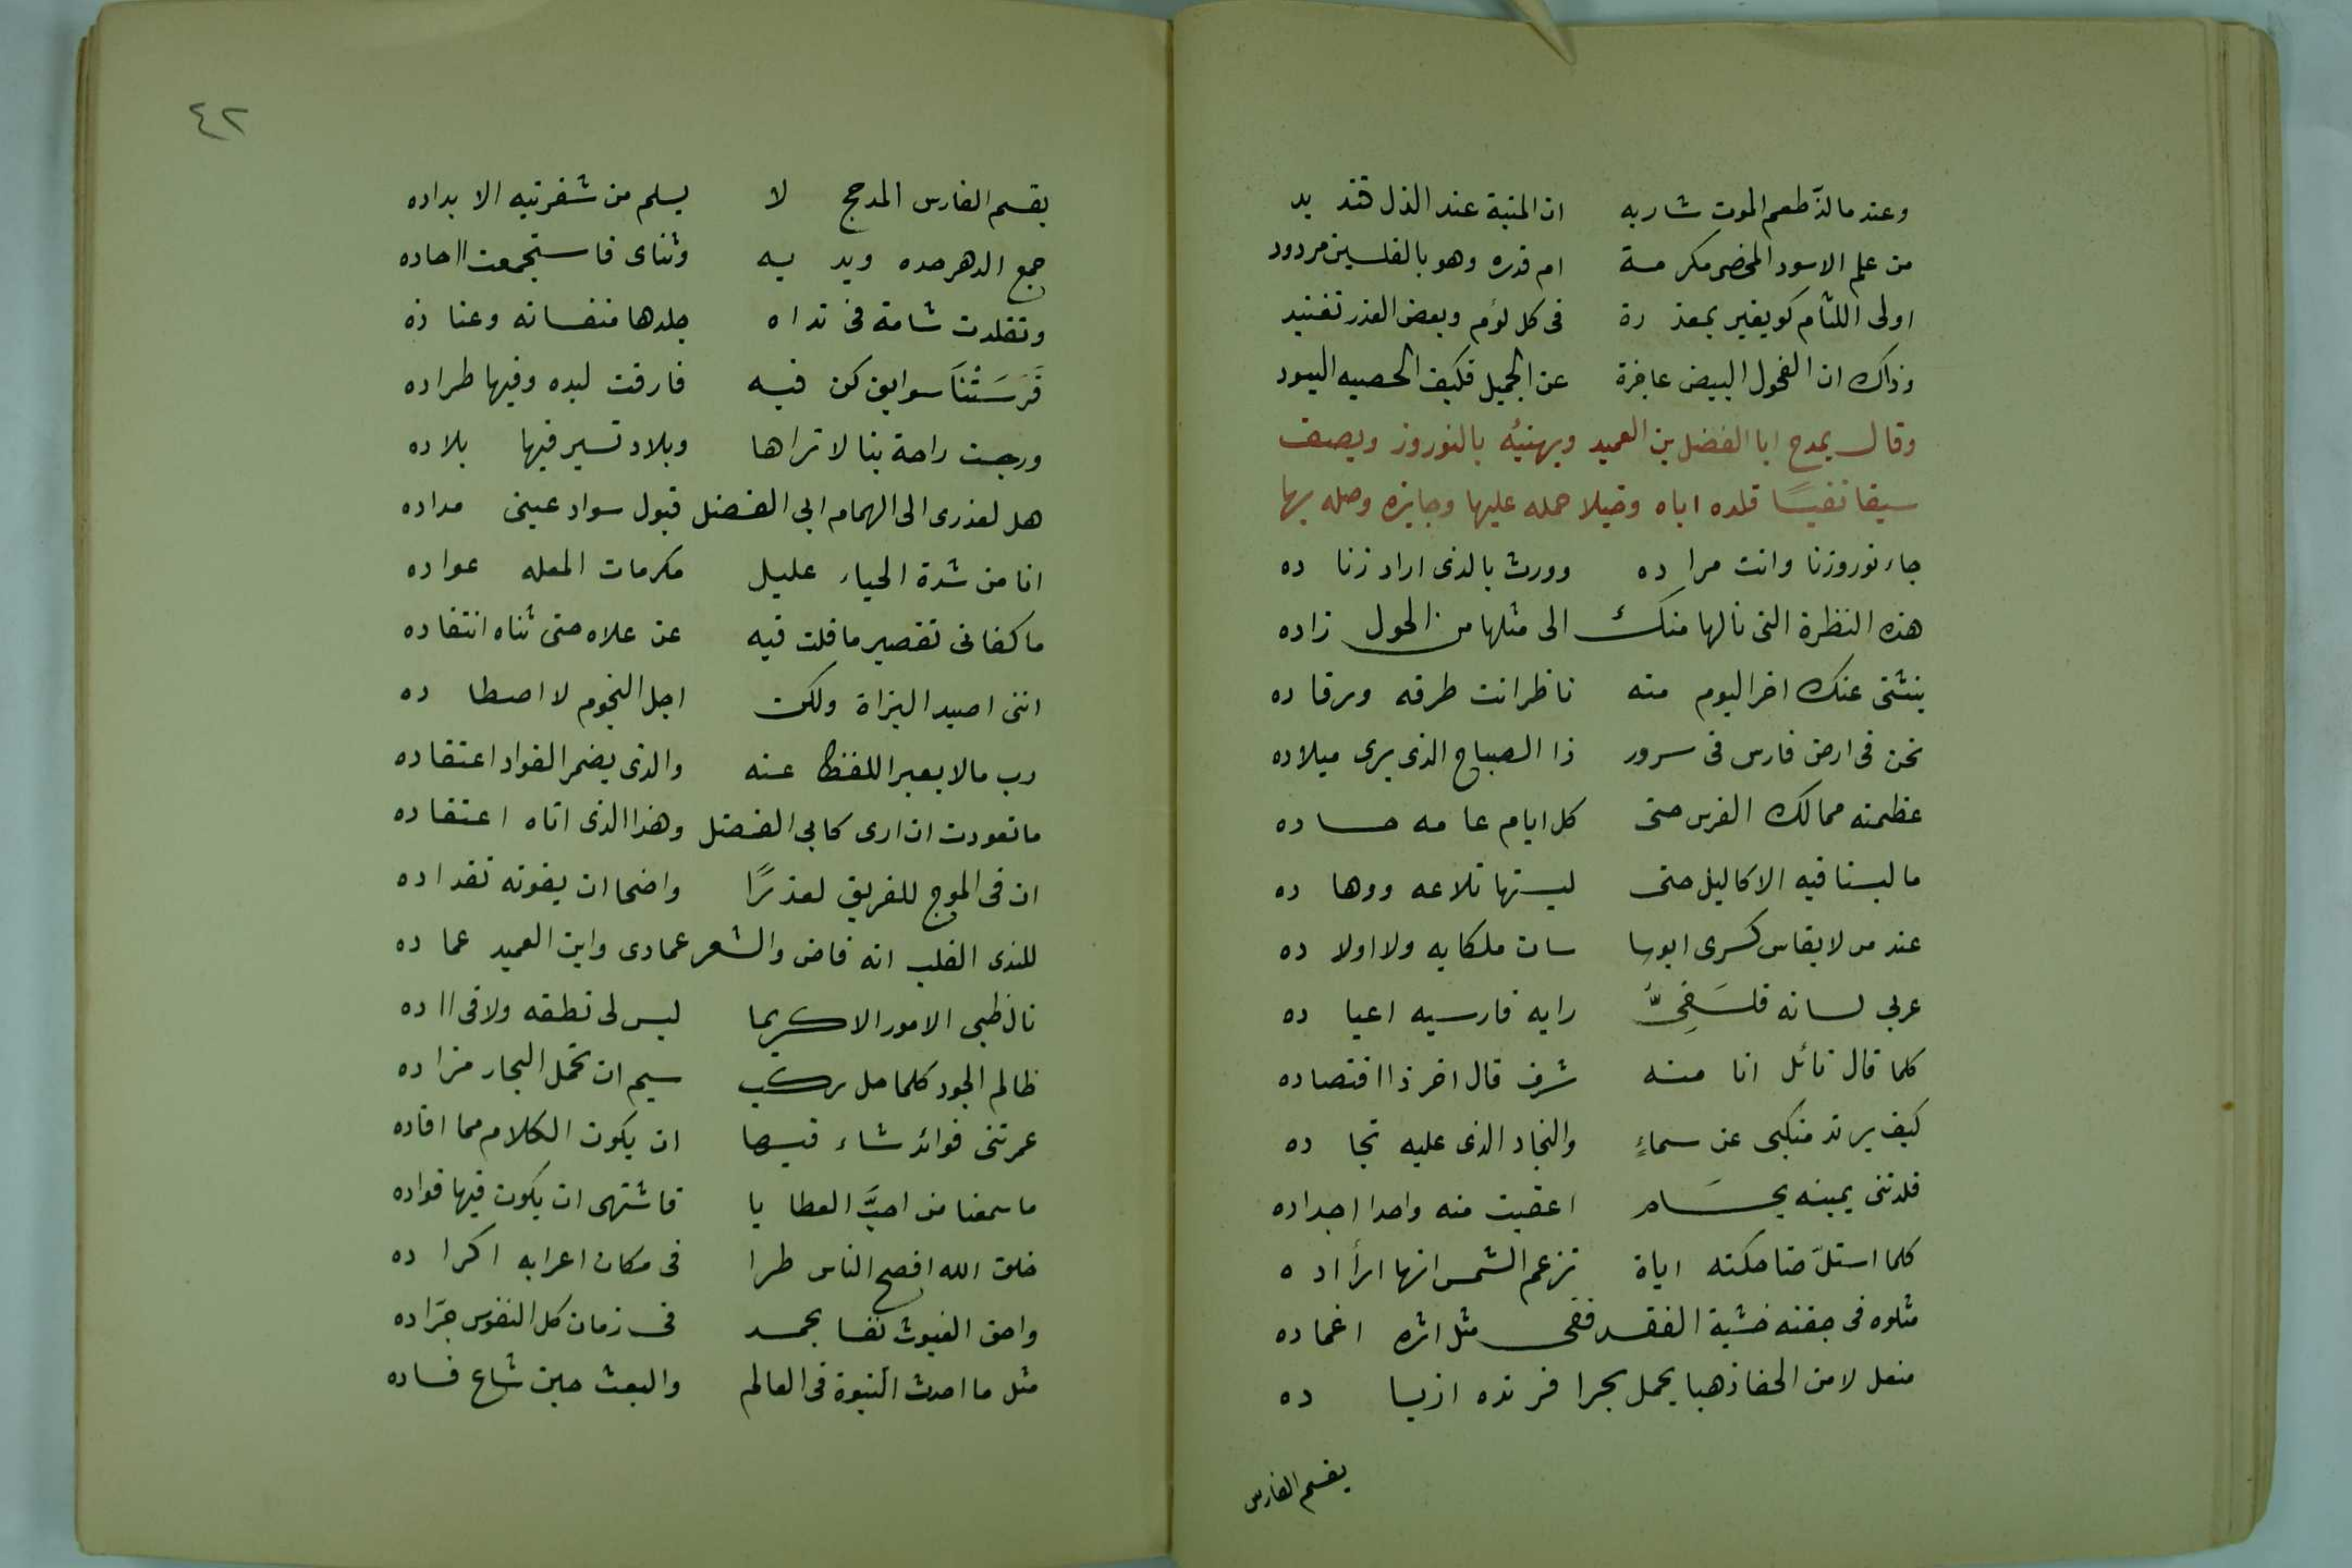 وعندها لذّ طعم الموت شاربه ان المنية عند الذل قند يد
من علم الاسود المخصى مكرمة ام قدره وهو بالفلسين مردود
اولى اللئام كويفير بمعذ رة فى كل لؤم وبعض العذر تفنيد
وذاك ان الفحول البيض عاجزة عن الجميل فكيف الخصيه السود
وقال يمدح ابا الفضل بن العميد ويهنيه بالنوروز ويصف
سيفا نفيسًا قلده اياه وخيلا حمله عليها وجايزه وصله بها
جاء نوروزنا وانت مرا ده وورث بالذى اراد زنا ده
هذه النظرة التى نالها منك الى مثلها من الحول زاده
ينثنى عنك اخر اليوم منه ناظر انت طرفه ورقا ده
نحن فى ارض فارس فى سرور ذا الصباح الذى يرى ميلاده
عظمته ممالك الفرس حتى كل ايام عا مه حسا ده
ما لبسنا فيه الاكاليل حتى لبستها تلاعه ووها ده
عند من لا يقاس كسرى ابوسا سان ملكا به ولا اولا ده
عربى لسانه فلسَفِىٌّ رايه فارسيه اعيا ده
كلما قال نائل انا منه شرف قال اخر ذا اقتصاده
كيف يرتد منكبى عن سماءٍ والنجاد الذى عليه نجا ده
قلدتنى يمينه بحسَام اعقبت منه واحدا اجداده
كلما استلّ ضاحكته اياة تزعم الشمس انها ارأد ه
مثلوه فى جفنه خشية الفقد ففى مثل اثره اغماده
منعل لا من الحفا ذهبا يحمل بحرا فرنده ازبا ده
يقسم الفارس
٤٢
يقسم الفارس المدجج لا يسلم من شفرتيه الا بداده
جمع الدهر حده ويد يه وثناى فاستجمعت ااحاده
وتقلدت شامة فى نداه جلدها منفساته وعتا ده
فَرسَتْنَا سوابق كن فيه فارقت لبده وفيها طراده
ورجت راحة بنا لا تراها وبلاد تسير فيها بلاده
هل لعذرى الى الهمام ابى الفضل قبول سواد عينى مداده
انا من شدة الحياء عليل مكرمات المعله عواده
ما كفانى تقصير ما قلت فيه عن علاه حتى ثناه انتقاده
اننى اصيد البزاة ولكن اجل النجوم لا اصطا ده
رب ما لا يعبر اللفظ عنه والذى يضمر الفواد اعتقاده
ما تعودت ان ارى كابى الفضل وهذا الذى اتاه اعتقاده
ان فى الموج للغريق لعذرًا واضحا ان يفوته تعداده
للندى الغلب انه فاض والشعر عمادى وابن العميد عما ده
نال ظنى الامور الا كريما ليس لى نطقه ولا فى ااده
ظالم الجود كلما حل ركب سيم ان تحمل البحار مزاده
غمرتنى فوائد شاء فيها ان يكون الكلام مما افاده
ما سمعنا من احبَّ العطا يا فاشتهى ان يكون فيها فواده
خلق الله افصح الناس طرا فى مكان اعرابه اكرا ده
واحق الغيوث نفسا بحمد فى زمان كل النفوس جرّاده
مثل ما احدث النبوة فى العالم والبعث حين شاع فساده